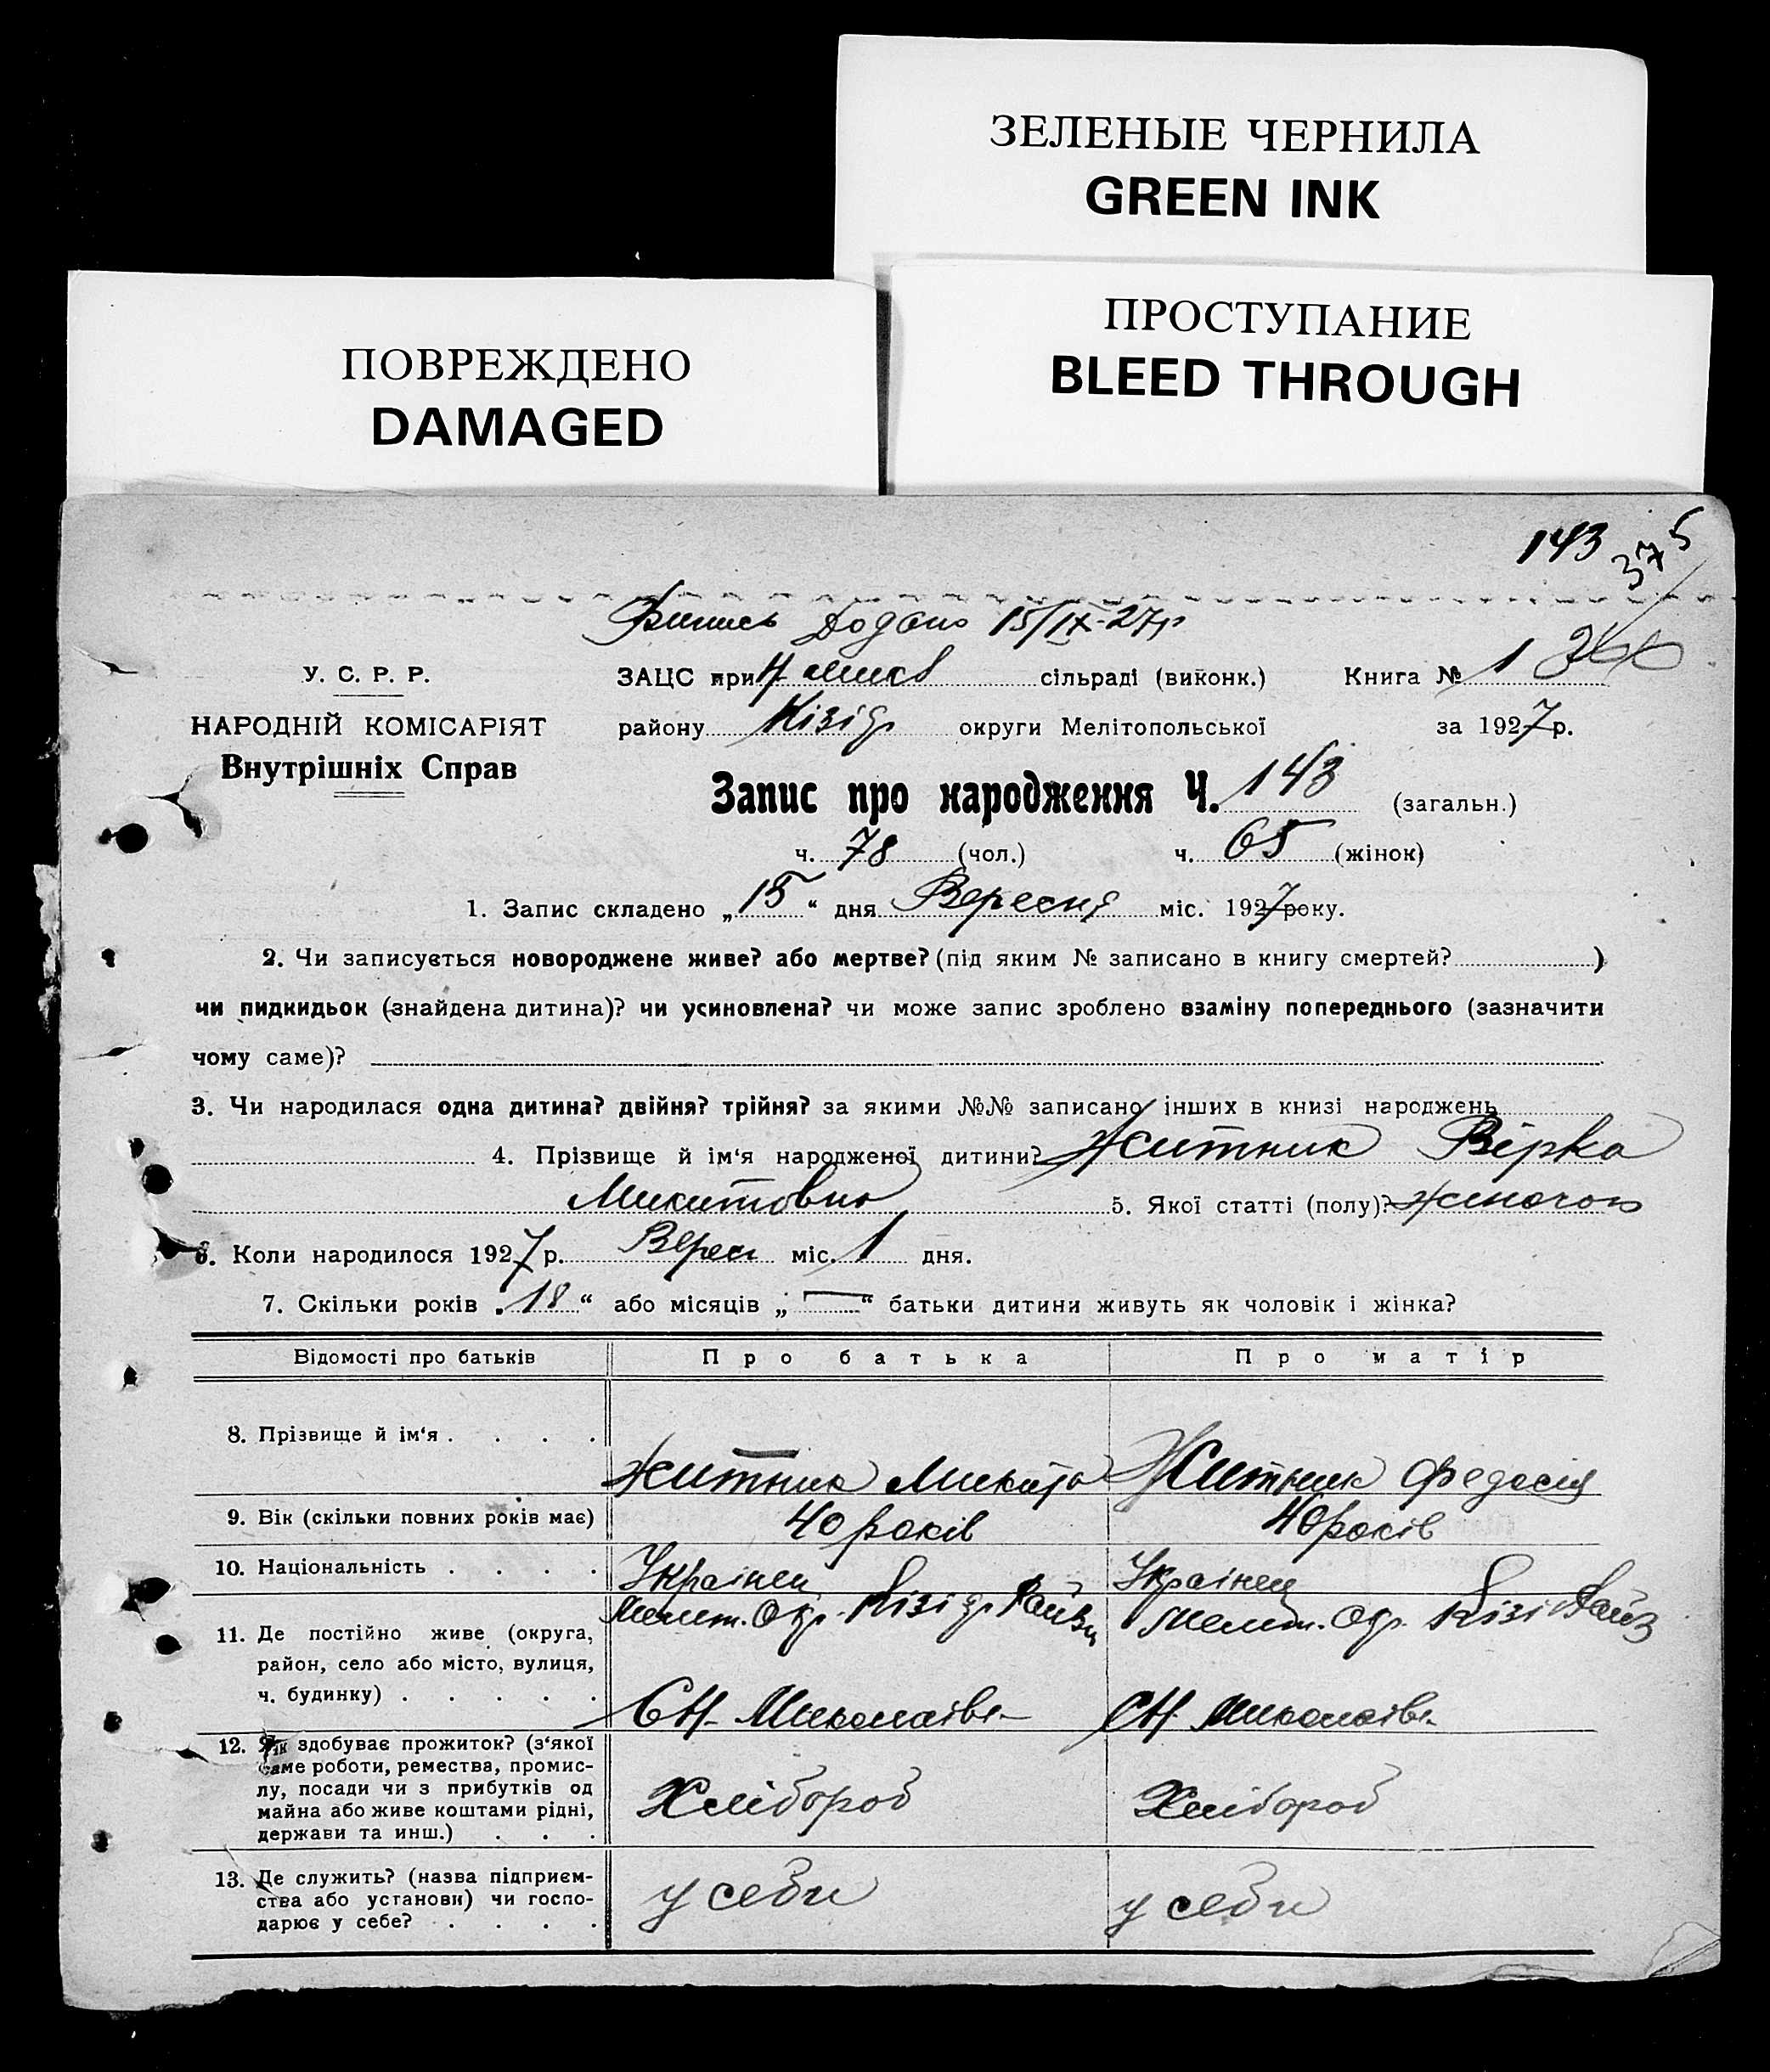 ЗЕЛЕНЫЕ ЧЕРНИЛА
GREEN INK
ПОВРЕЖДЕНО
DAMAGED
ПРОСТУПАНИЕ
BLEED THROUGH
143 375
Випись додано 15/IX-27р
У. С. Р. Р.
НАРОДНІЙ КОМІСАРІЯТ
Внутрішніх Справ
ЗАЦС при Н микв сільраді (виконк.) Книга № 1
району Кізідр округи Мелітопольської за 1927р.
Запис про народження Ч. 143 (загальн.)
ч. 78 (чол.) ч. 65 (жінок)
1. Запис складено „15“ дня Вересня міс. 1927 року.
2. Чи записується новороджене живе? або мертве? (під яким № записано в книгу смертей? )
чи пидкидьок (знайдена дитина)? чи усиновлена? чи може запис зроблено взаміну попереднього (зазначити
чому саме)?
3. Чи народилася одна дитина? двійня? трійня? за якими №№ записано інших в книзі народжень
4. Прізвище й ім‘я народженої дитини? Житник Вірка
Микитовна 5. Якої статті (полу)? жиночого
6. Коли народилося 1927р. Верес міс. 1 дня.
7. Скільки років „18“ або місяців „—“ батьки дитини живуть як чоловік і жінка?
Відомості про батьків Про батька Про матір
8. Прізвище й ім‘я . . . . Житник Микита Житник Федосія
9. Вік (скільки повних років має) 40 років 40 років
10. Національність . . . . Українец Українец
11. Де постійно живе (округа, район, село або місто, вулиця, ч. будинку) . . . . .
Мелит. Окр. Кізідр Мелит. Окр. Кізі
СН. Миколаівк СН. Миколаівк
12. Як здобуває прожиток? (з‘якої
саме роботи, ремества, промис-
лу, посади чи з прибутків од
майна або живе коштами рідні,
держави та инш.) . . .
Хлібороб Хлібороб
13. Де служить? (назва підприєм-
ства або установи) чи госпо-
дарює у себе? . . . .
у себи у себи